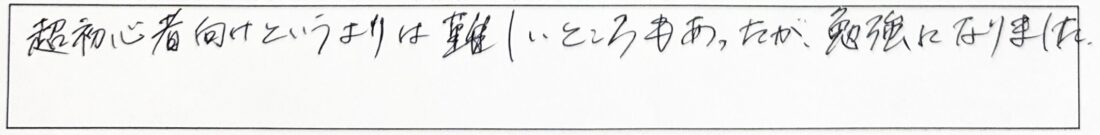 超初心者向けというよりは難しいところもあったが、勉強になりました.